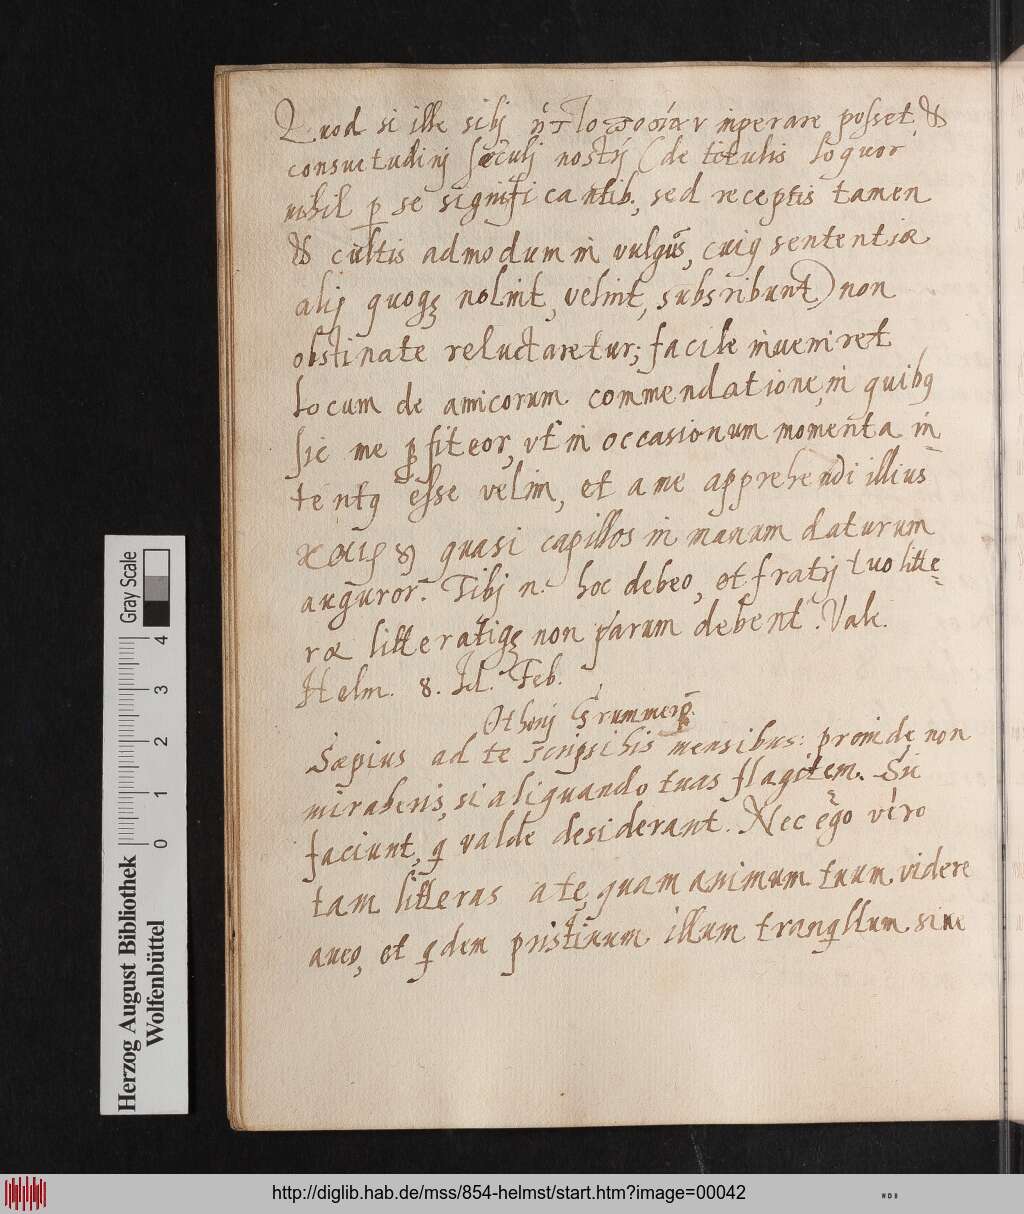 Quod si ille sibj imperare posset, &
consuetudinj sæculj nostrj (de titulis loquor
nihil p se significantib, sed receptis tamen
& cultis admodum in vulgus, cuiq sententiæ
alij quoq nolint, velint, subsribunt) non
obstinate reluctaretur; facile inveniret
locum de amicorum commendatione, in quibq
sic me pfiteor, vt in occasionum momenta in
tentq esse velim, et a me apprehendi illius
quasi capillos in manum daturum
auguror. Tibj n. hoc debeo, et fratrj tuo litte
ræ litteratiq non parum debent. Vale.
Helm. 8. Id. Feb.
Othonj Grummerp.
Sæpius ad te scripsi his mensibus: proinde non
miraberis, si aliquando tuas flagitem. Sic
faciunt, q valde desiderant. Nec ego vero
tam litteras a te, quam animum tuum videre
aveo, et qdem pristinum illum tranqllum sine
Gray Scale
0 1 2 3 4
Herzog August Bibliothek
Wolfenbüttel
http://diglib.hab.de/mss/854-helmst/start.htm?image=00042